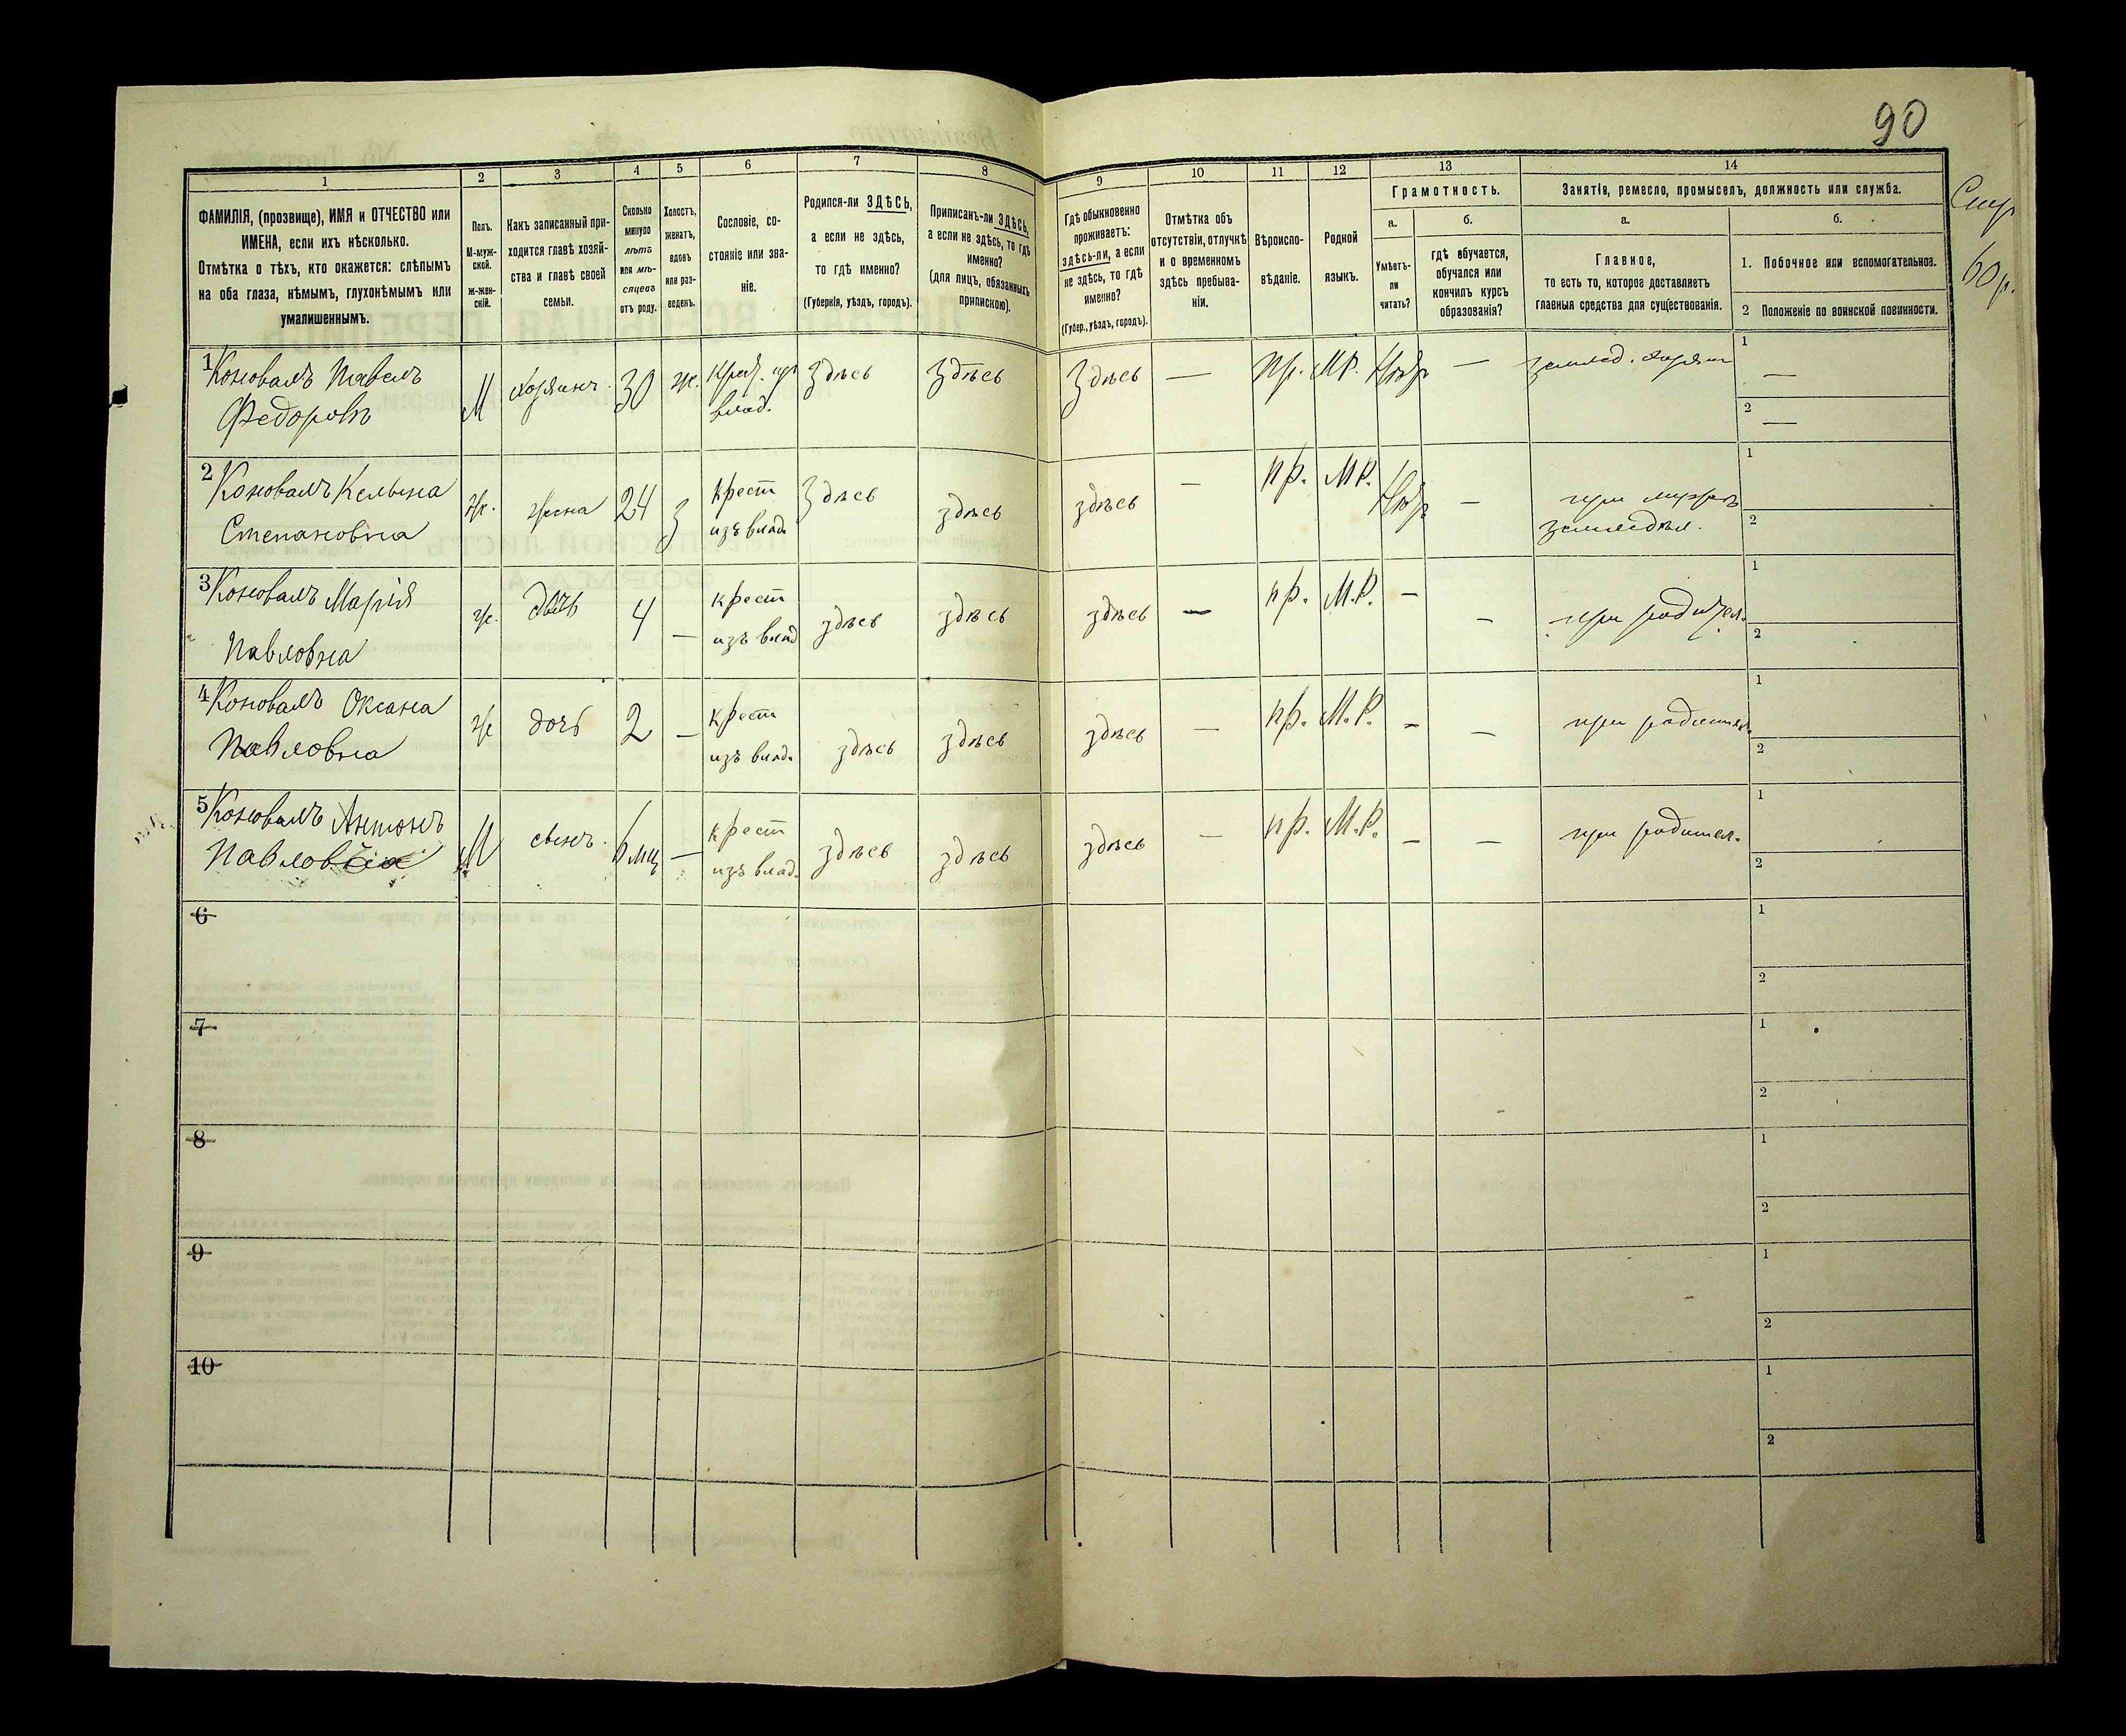 90
Снр
60 р.
1
2
3
4
5
6
7
8
9
10
11
12
13
14
ФАМИЛІЯ, (прозвище), ИМЯ и ОТЧЕСТВО или
ИМЕНА, если ихъ нѣсколько.
Отмѣтка о тѣхъ, кто окажется: слѣпымъ
на оба глаза, нѣмымъ, глухонѣмымъ или
умалишеннымъ.
Полъ.
М-муж-
ской.
ж-жен-
скій.
Какъ записанный при-
ходится главѣ хозяй-
ства и главѣ своей
семьи.
Сколько
минуло
лѣтъ
или мѣ-
сяцевъ
отъ роду.
Холостъ,
женатъ,
вдовъ
или раз-
веденъ.
Сословіе, со-
стояніе или зва-
ніе.
Родился-ли ЗДѢСЬ,
а если не здѣсь,
то гдѣ именно?
(Губернія, уѣздъ, городъ).
Приписанъ-ли ЗДѢСЬ,
а если не здѣсь, то гдѣ
именно?
(для лицъ, обязанныхъ
припискою).
Гдѣ обыкновенно
проживаетъ:
здѣсь-ли, а если
не здѣсь, то гдѣ
именно?
(Губер., уѣздъ, городъ).
Отмѣтка объ
отсутствіи, отлучкѣ
и о временномъ
здѣсь пребыва-
ніи.
Вѣроиспо-
вѣданіе.
Родной
языкъ.
Грамотность.
а.
Умѣетъ-
ли
читать?
б.
гдѣ обучается,
обучался или
кончилъ курсъ
образованія?
Занятіе, ремесло, промыселъ, должность или служба.
а.
Главное,
то есть то, которое доставляетъ
главныя средства для существованія.
б.
1. Побочное или вспомогательное.
2 Положеніе по воинской повинности.
1 Коновалъ Павелъ
Федоровъ
М
хозяинъ.
30
ж.
Крест. изъ
влад.
Здѣсь
Здѣсь
Здѣсь
—
Пр.
М.Р.
—
землед. хозяин
1
—
2
—
2 Коновалъ Кельина
Степановна
ж.
жена
24
З
крест
изъ влад.
Здѣсь
здѣсь
здѣсь
—
пр.
М.Р.
—
при
земледѣл.
1
2
3 Коновалъ Марія
Павловна
ж.
дочь
4
—
крест
изъ влад
здѣсь
здѣсь
здѣсь
—
пр.
М.Р.
—
—
при родител.
1
2
4 Коновалъ Оксана
Павловна
ж
дочь
2
—
крест
изъ влад.
здѣсь
здѣсь
здѣсь
—
пр.
М.Р.
—
—
при родител.
1
2
5 Коновалъ Антонъ
Павлов
М
сынъ.
6 мц
—
крест
изъ влад.
здѣсь
здѣсь
здѣсь
—
пр.
М.Р.
—
—
при родител.
1
2
6
1
2
7
1
2
8
1
2
9
1
2
10
1
2